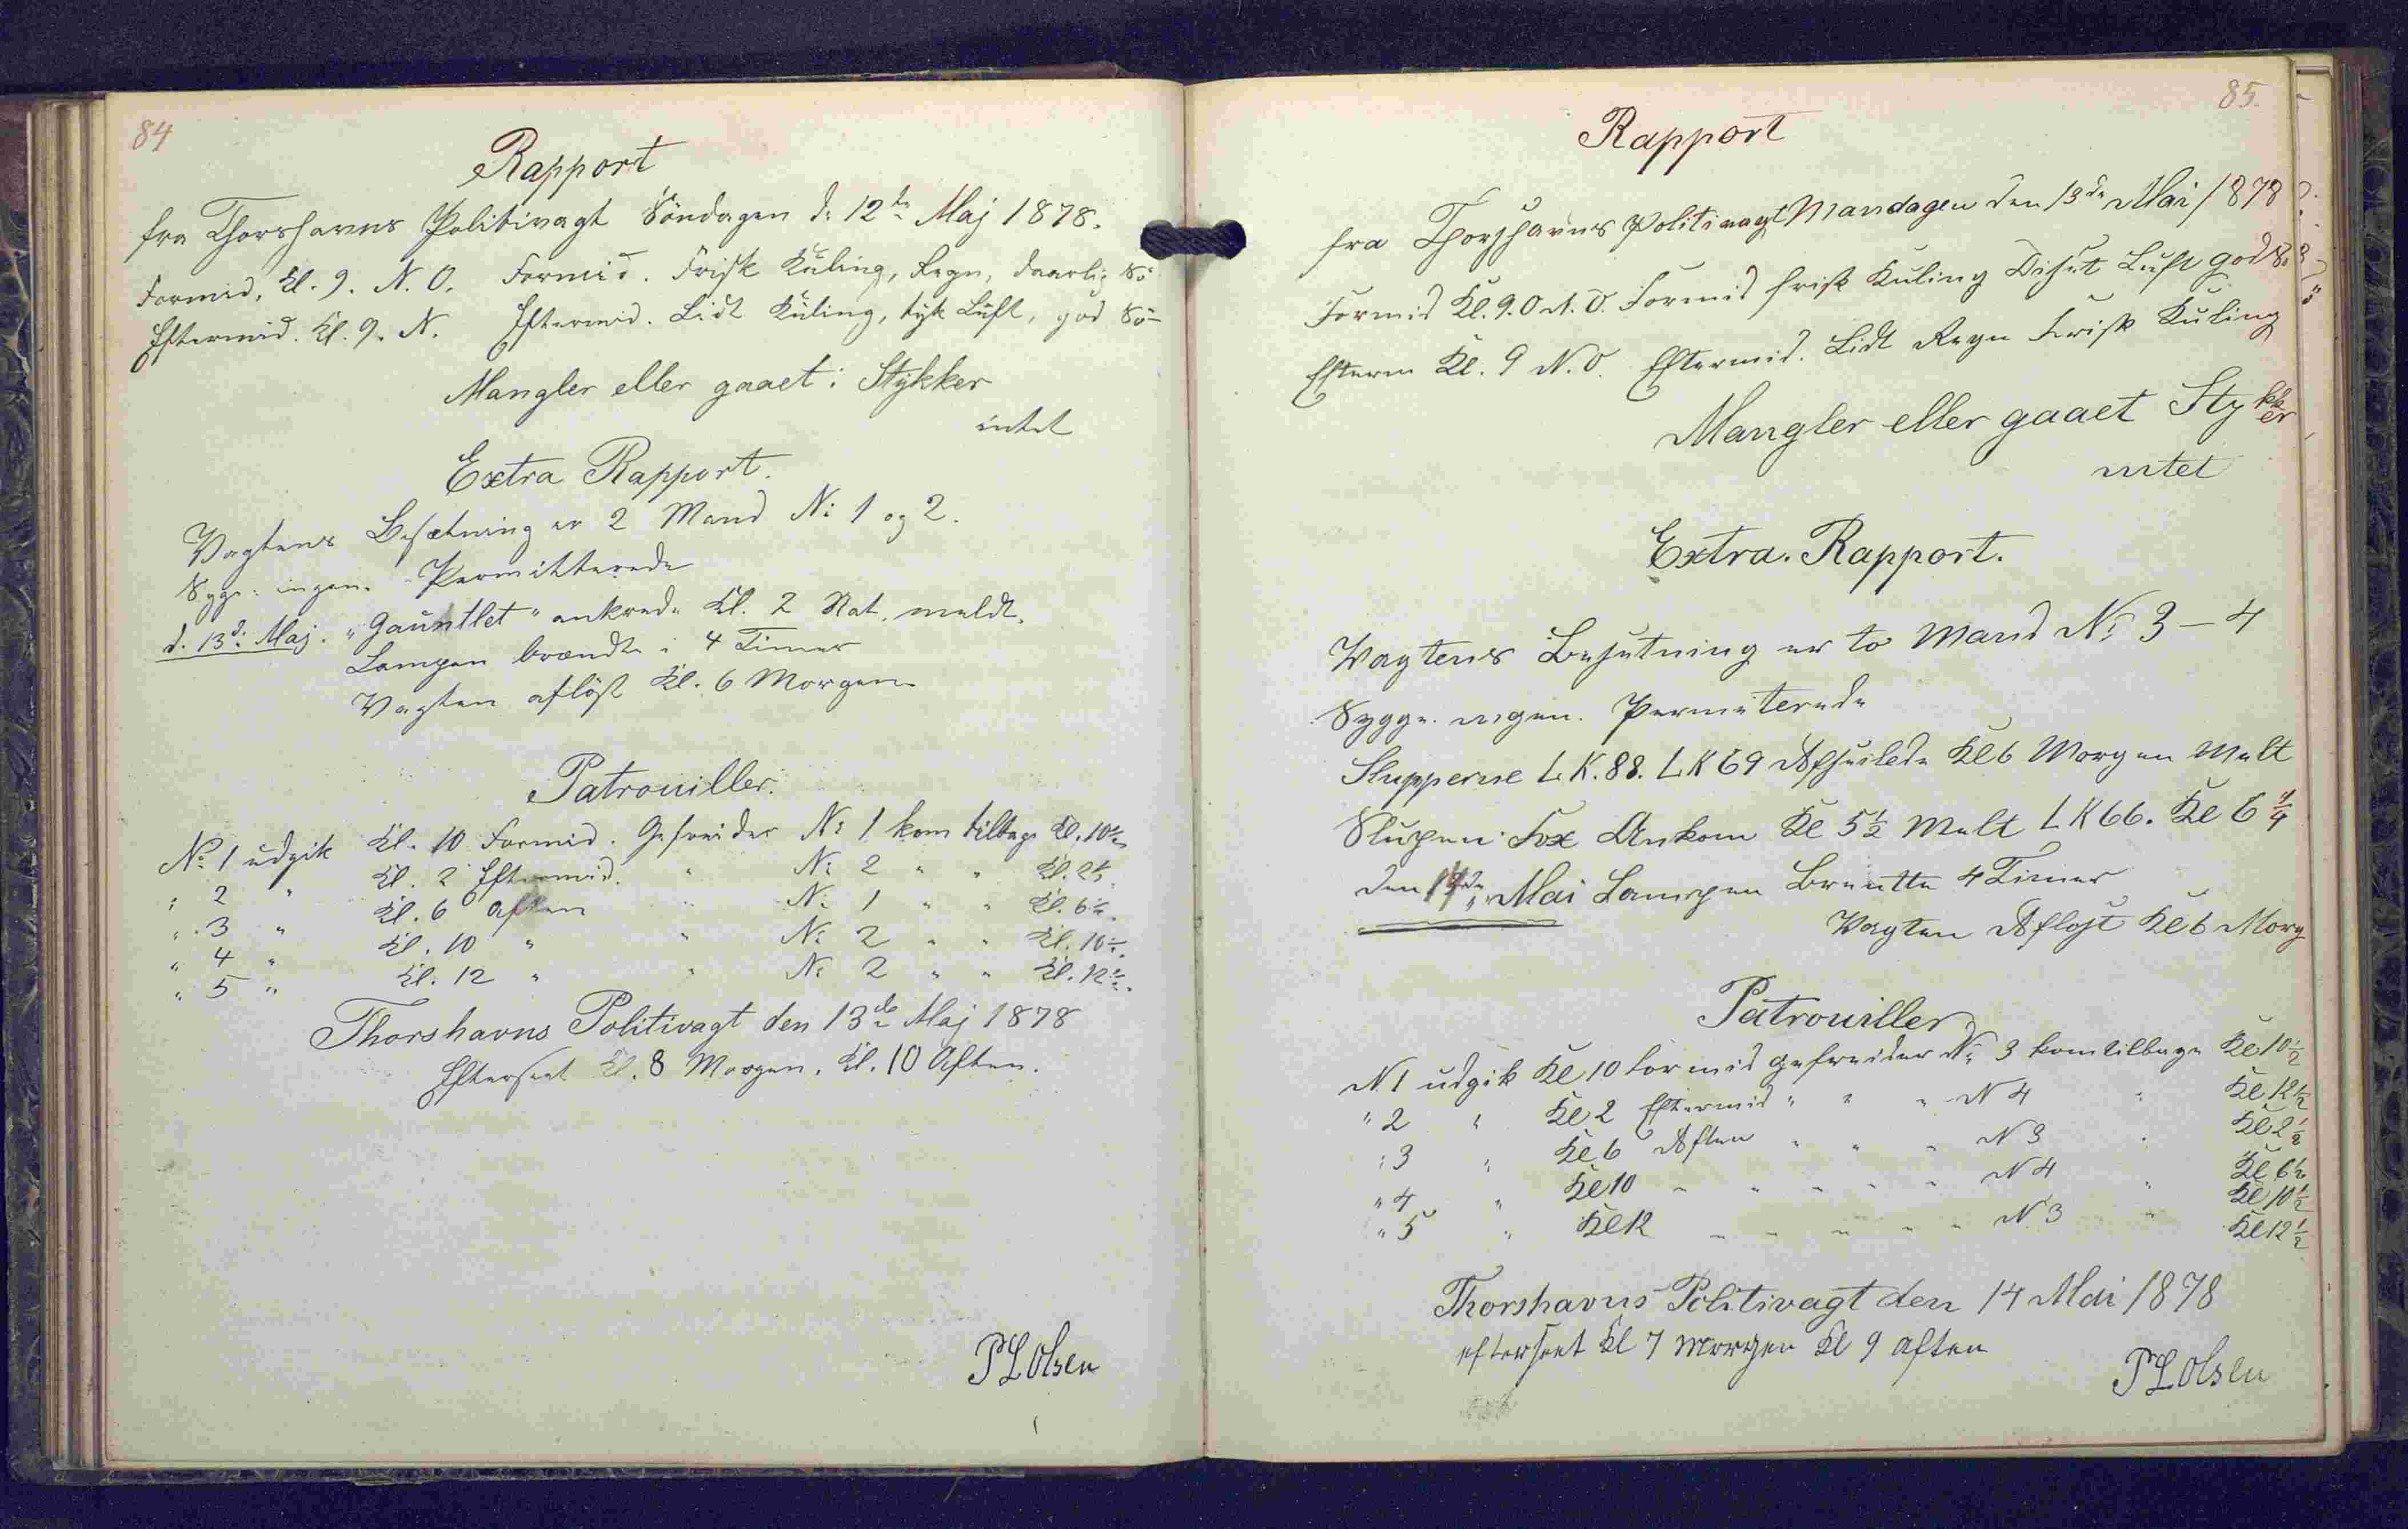 84
Rapport
fra Thorshavns Politivagt Söndagen d: 12te Maj 1878.
Formid. Kl. 9. N. O. Formid. Frisk Kuling, Regn, daarlig Sö
Eftermid. Kl. 9. N. Eftermid. Lidt Kuling, tyk Luft, god Sö-
Mangler eller gaaet i Stykker
intet
Extra Rapport.
Vagtens Besætning er 2 Mand No 1 og 2.
Syge: ingen. Permitterede
d. 13d: Maj. "Gauntlet" ankrede Kl. 2 Nat. meldt.
Lampen brændte i 4 Timer
Vagten aflöst Kl. 6 Morgen
Patrouiller.
No 1 udgik Kl. 10 Formid. Gefreider No 1 kom tilbage Kl. 10½
" 2 " Kl. 2 Eftermid. " No 2 " " Kl. 2½.
" 3 " Kl. 6 Aften " No 1 " " Kl. 6½.
" 4 " Kl. 10 " " No 2 " " Kl. 10½.
" 5 " Kl. 12 " " No 2 " " Kl. 12½.
Thorshavns Politivagt den 13de Maj 1878
Efterseet Kl. 8 Morgen. Kl. 10 Aften.
P L Olsen
85.
Rapport
fra Thorshavns Politivagt Mandagen den 13de Mai 1878
Formid Kl. 9. O N. O. Formid frisk Kuling Diset Luft god Sö
Efterm Kl. 9 N. O. Eftermid. Lidt Regn Frisk Kuling
Mangler eller gaaet Stykker
intet
Extra. Rapport.
Vagtens Besetning er to Mand No 3 – 4
Sygge. ingen. Permeterede
Slupperne L K. 88. L K 69 Afseilede Kl 6 Morgen Melt
Slupen Fox Ankom Kl 5½ Melt L K 66. Kl 6 ¼
den 14de Mai Lampen Brentte 4 Timer
Vagten Afløst Kl 6 Morg
Patrouiller
N 1 udgik Kl 10 formid gefreider No 3 kom tilbage Kl 10½
" 2 " Kl 2 Eftermid " " " N 4 " Kl 12½
" 3 " Kl 6 Aften " " " N 3 " Kl 2½
" 4 " Kl 10 " " " " " N 4 " Kl 6½
" 5 " Kl 12 " " " " " N 3 " Kl 10½
Kl 12½
Thorshavns Politivagt den 14 Mai 1878
efterseet Kl 7 Morgen Kl 9 aften
P L Olsen